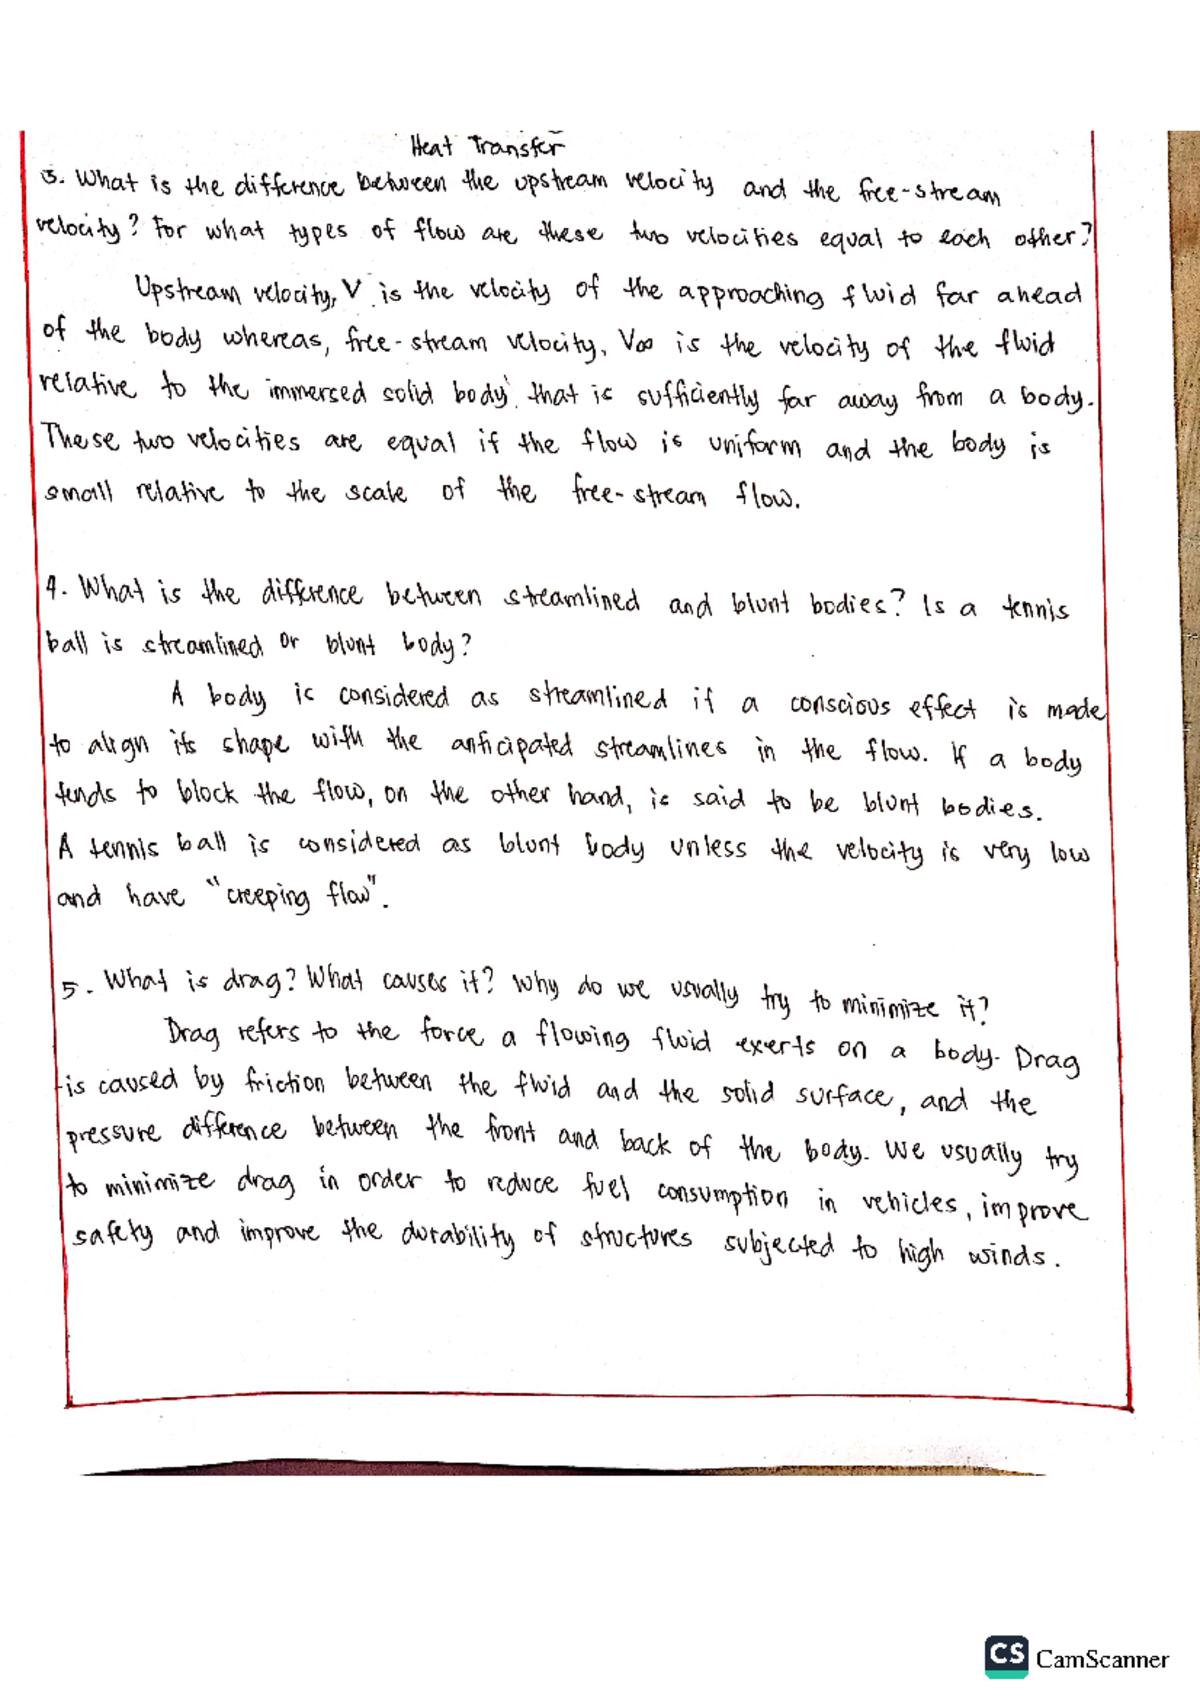 Heat Transfer
3. What is the difference between the upstream velocity and the free-stream
velocity? For what types of flow are these two velocities equal to each other?
Upstream velocity, V is the velocity of the approaching fluid far ahead
of the body whereas, free-stream velocity, V∞ is the velocity of the fluid
relative to the immersed solid body that is sufficiently far away from a body.
These two velocities are equal if the flow is uniform and the body is
small relative to the scale of the free-stream flow.
4. What is the difference between streamlined and blunt bodies? Is a tennis
ball is streamlined or blunt body?
A body is considered as streamlined if a conscious effect is made
to align its shape with the anticipated streamlines in the flow. If a body
tends to block the flow, on the other hand, is said to be blunt bodies.
A tennis ball is considered as blunt body unless the velocity is very low
and have "creeping flow".
5. What is drag? What causes it? Why do we usually try to minimize it?
Drag refers to the force a flowing fluid exerts on a body. Drag
is caused by friction between the fluid and the solid surface, and the
pressure difference between the front and back of the body. We usually try
to minimize drag in order to reduce fuel consumption in vehicles, improve
safety and improve the durability of structures subjected to high winds.
CS CamScanner